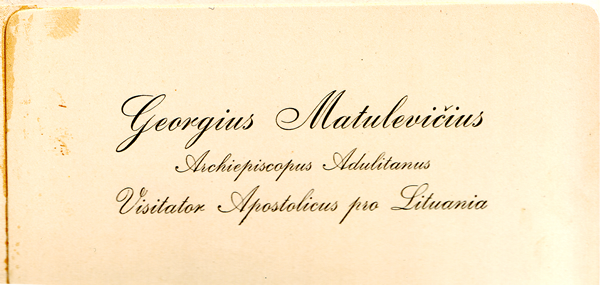 Georgius Matulevičius
Archiepiscopus Adulitanus
Visitator Apostolicus pro Lituania